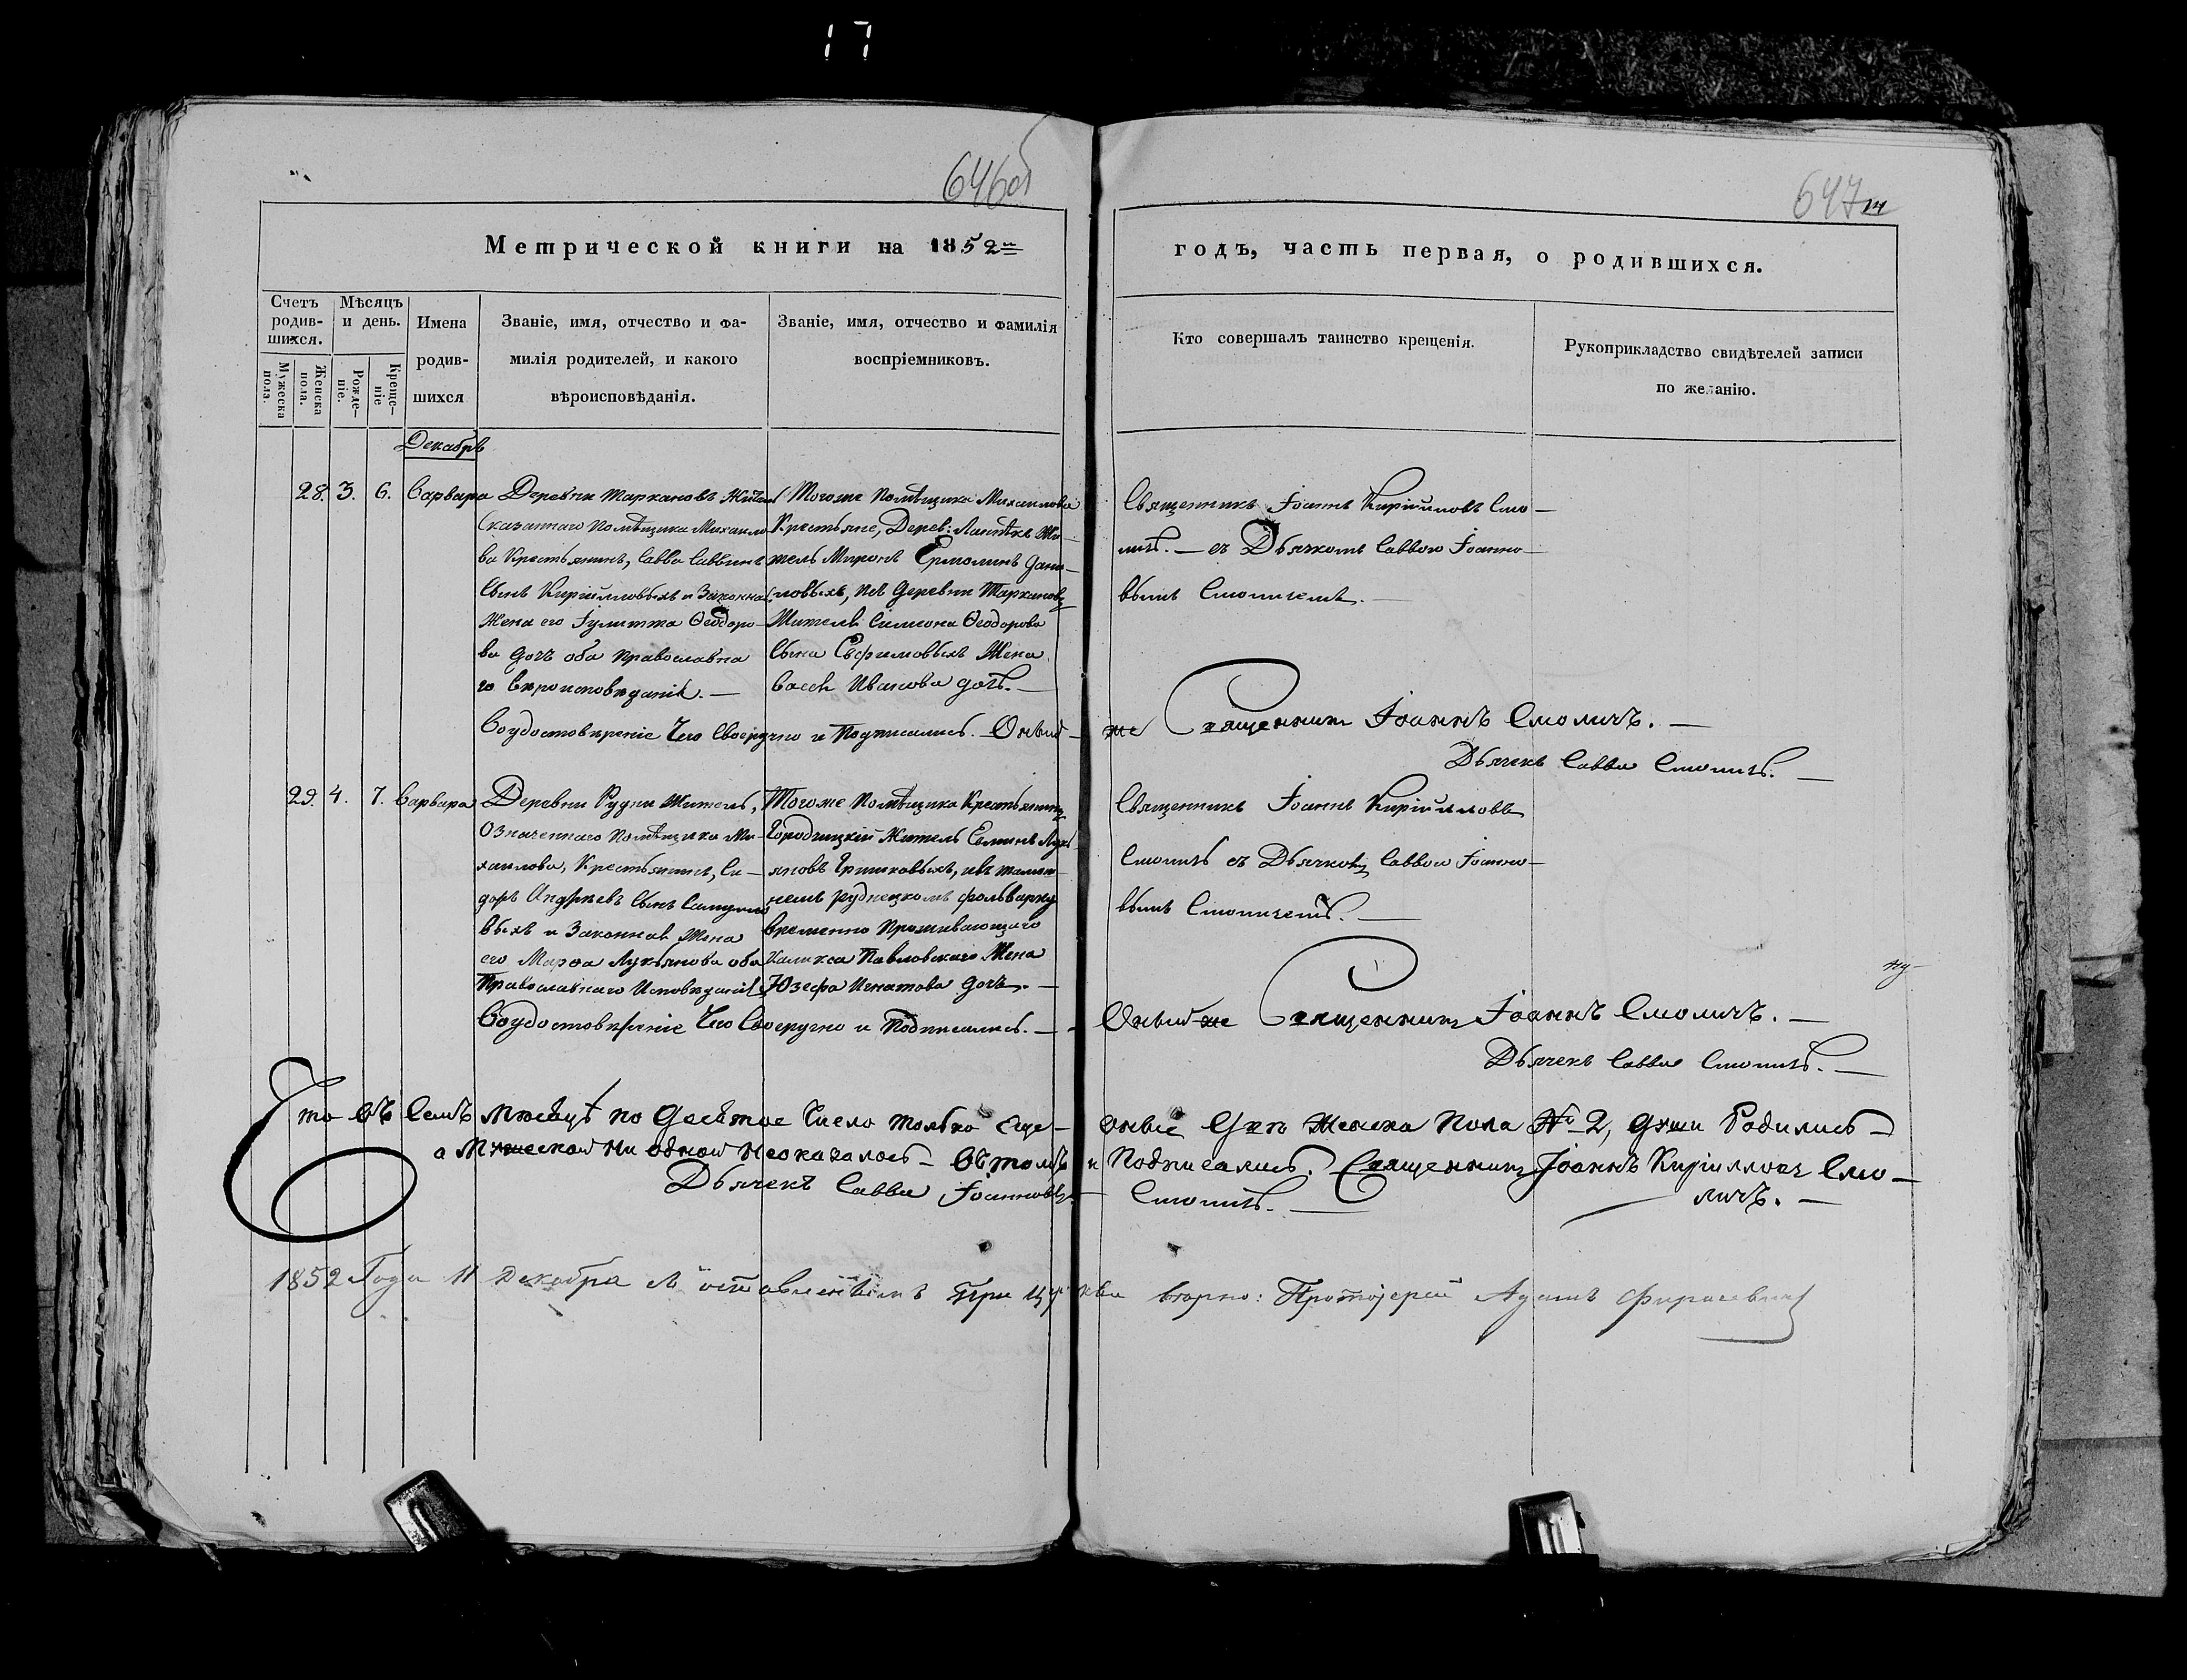 17
646об
647
14
Метрической книги на 1852й
годъ, часть первая, о родившихся.
Счетъ родив-шихся.
Мужеска пола.
Женска пола.
Мѣсяцъ и день.
Рожде-ніе.
Креще-ніе
Имена
родив-
шихся
Званіе, имя, отчество и фа-
милія родителей, и какого
вѣроисповѣданія.
Званіе, имя, отчество и фамилія
воспріемниковъ.
Кто совершалъ таинство крещенія.
Рукоприкладство свидѣтелей записи
по желанію.
Декабрь
28. 3. 6. Варвара
Деревни Таркановъ
Сказаннаго Помѣщика Михайло
ва Крестьянинъ, Савва Саввинъ
Сынъ Кирійловыхъ и Законная
Жена его Іулитта Ѳеодоро-
ва дочь оба православна
го Вѣроисповѣданія. —
Тогоже Помѣщика Михайлова
Крестьяне, Дерев: Жи-
тель Миронъ Ермолинъ Дани-
ловыхъ, деревни Таркановъ
Жителя Симеона Ѳеодорова
Сына Евфимовыхъ Жена
Васса Иванова дочь. —
Священникъ Іоаннъ Кирійловъ Смо—
личъ. — съ Дьячкомъ Саввою Іоанно—
вымъ Смоличемъ. —
Воудостовѣреніе Чего Своеручно и Подписались. Оный —
же Священникъ Іоаннъ Смоличъ. —
Дьячекъ Савва Смоличъ. —
29. 4. 7. Варвара
Деревни Рудни Житель,
Означеннаго Помѣщика Ми-
хайлова, Крестьянинъ, Си-
доръ Андреевъ Сынъ
выхъ и Законная Жена
его Марѳа Лукьянова оба
Православнаго Исповѣданія
Тогоже Помѣщика Крестьянинъ
Городицкій Житель Лукь-
яновъ Гришковыхъ, тамош-
немъ Руднецкомъ фольварку
временно Проживающаго
Павловскаго Жена
Юзефа Игнатова дочь. —
Священникъ Іоаннъ Кирійловъ
Смоличъ съ Дьячкомъ Саввою Іоанно—
вымъ Смоличемъ. —
Воудостовѣреніе Чего Своеручно и Подписались. —
Оный же Священникъ Іоаннъ Смоличъ. —
Дьячекъ Савва Смоличъ. —
Что въ Семъ Мѣсяцѣ по Десятое Число только
Женска Пола № 2, души Родились
а Мужеской ни одной неоказалось — Въ томъ и Подписались. Священникъ Іоаннъ Кирилловъ Смо—
личъ. —
Дьячекъ Савва Іоанновъ — Смоличъ. —
1852 Года 11 Декабря съ оставленнымъ при церкви вѣрно: Протоіерей Адамъ